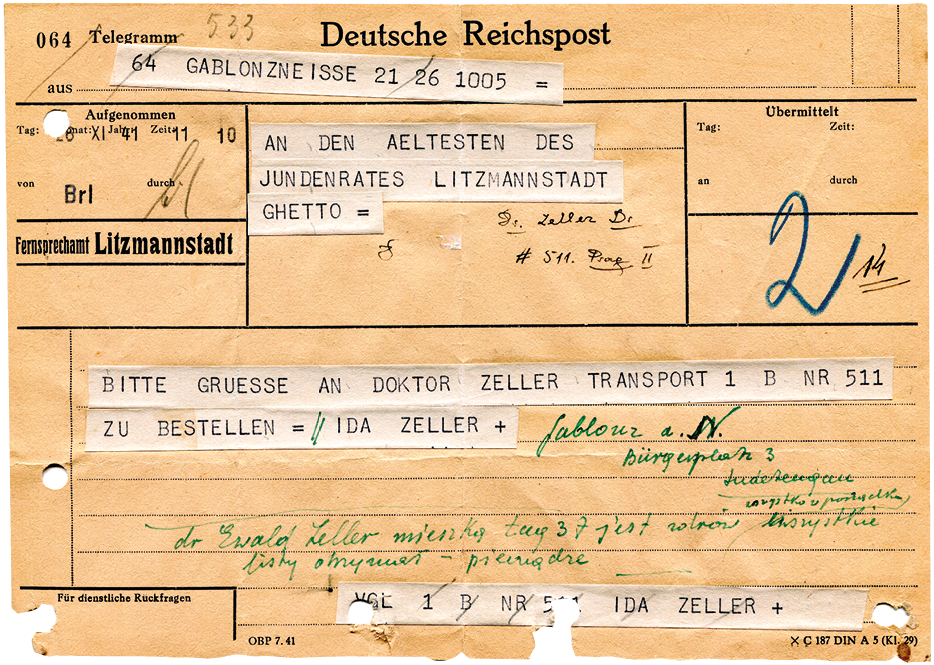 064 Telegramm 533 Deutsche Reichspost
64 GABLONZNEISSE 21 26 1005 =
aus
Aufgenommen
Tag: Monat: Jahr: Zeit:
26 XI 41 11 10
von durch
Brl
Fernsprechamt Litzmannstadt
AN DEN AELTESTEN DES
JUNDENRATES LITZMANNSTADT
GHETTO =
Dr. Zeller Dr
# 511. Prag II
Übermittelt
Tag: Zeit:
an durch
2
14
BITTE GRUESSE AN DOKTOR ZELLER TRANSPORT 1 B NR 511
ZU BESTELLEN = // IDA ZELLER +
Gablonz a. N.
Bürgerplatz 3
Sudetengau
wszystko w porządku
dr Ewald Zeller mieszka 37 jest zdrów wszystkie
listy otrzymał – pieniądze
Für dienstliche Rückfragen
VGL 1 B NR 511 IDA ZELLER +
OBP 7. 41
× C 187 DIN A 5 (Kl. 29)